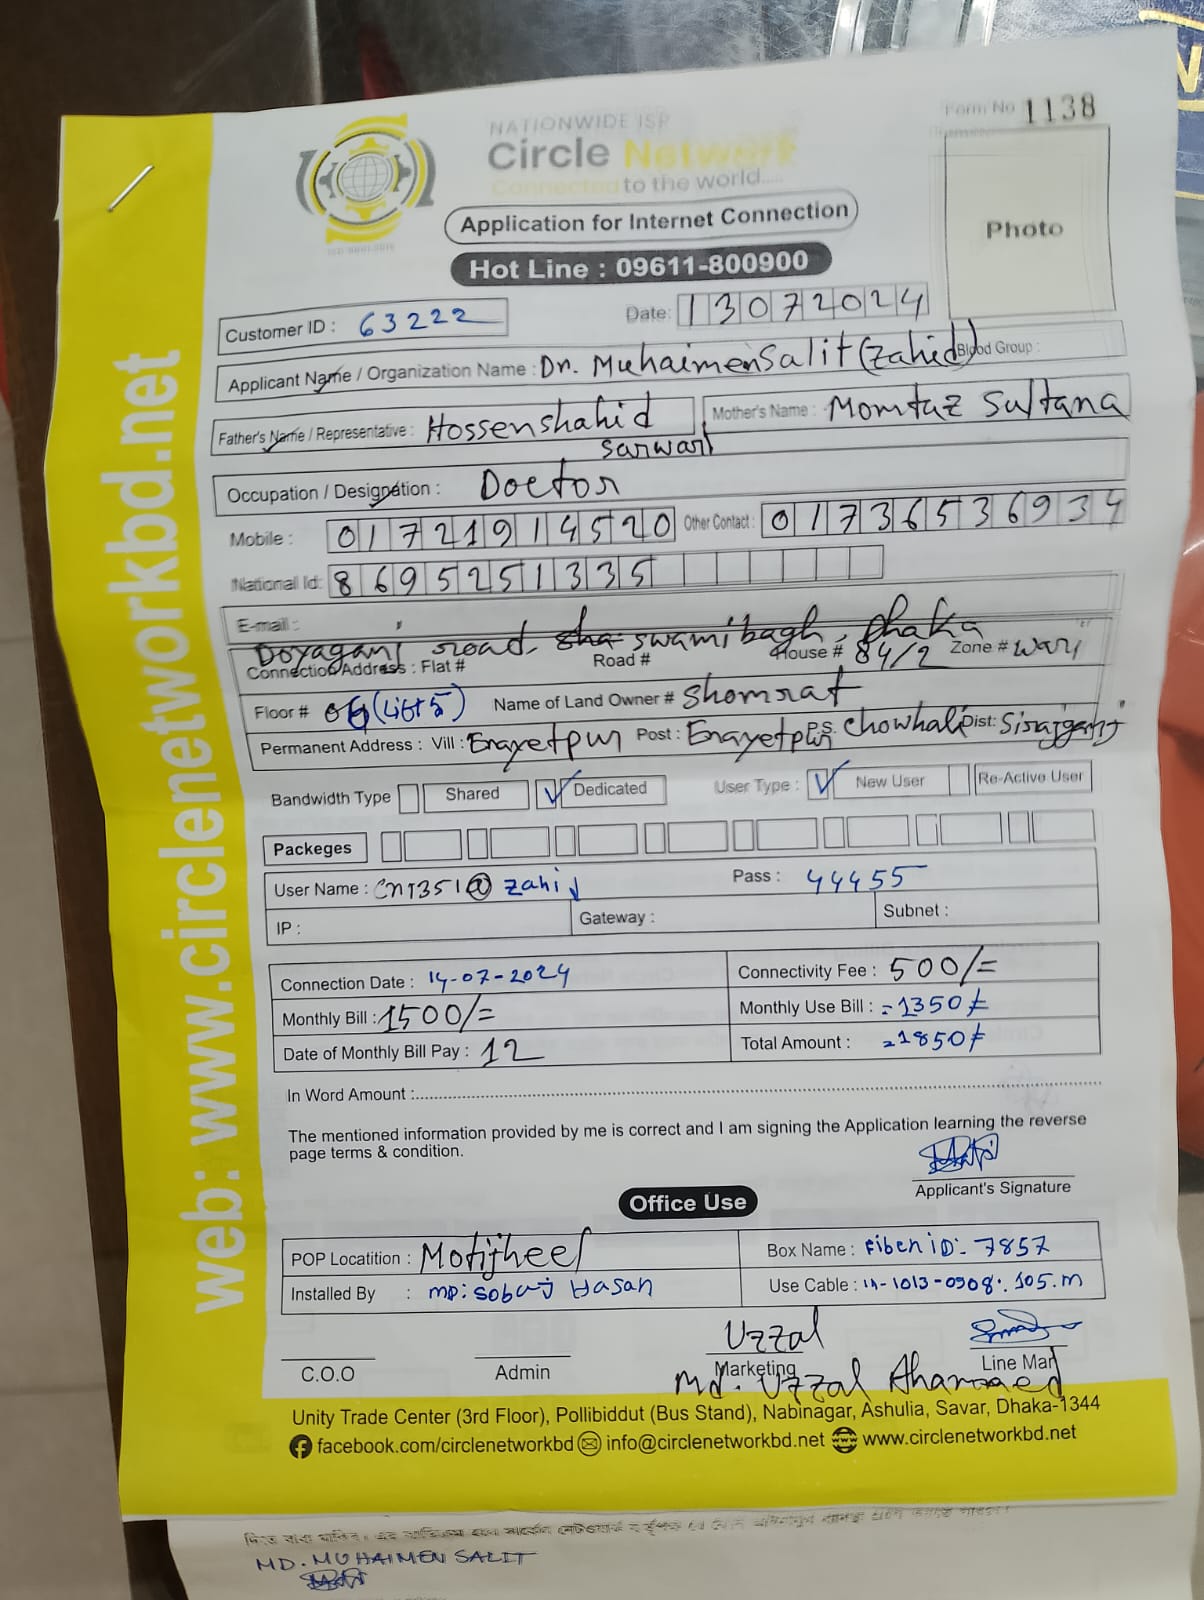 Form No 1138
NATIONWIDE ISP
Circle Network
Connected to the world.....
Application for Internet Connection
Hot Line : 09611-800900
Photo
Customer ID : 63222
Date: 13072024
Applicant Name / Organization Name : Dr. Muhaimen Salit (Zahid) Blood Group :
Father's Name / Representative : Hossenshahid sarwar
Mother's Name : Momtaz Sultana
Occupation / Designation : Doctor
Mobile : 01721914520 Other Contact : 01736536934
National Id: 8695251335
E-mail :
Doyaganj road, swamibagh, Dhaka
Connection Address : Flat # Road # House # 84/2 Zone # wari
Floor # (Lift 5) Name of Land Owner # Shomrat
Permanent Address : Vill : Enayetpur Post : Enayetpur P.S. Chowhali Dist: Sirajganj
Bandwidth Type Shared Dedicated User Type : New User Re-Active User
Packeges
User Name : CNT351@zahid Pass : 44455
IP : Gateway : Subnet :
Connection Date : 14-07-2024 Connectivity Fee : 500/=
Monthly Bill : 1500/= Monthly Use Bill : =1350/=
Date of Monthly Bill Pay : 12 Total Amount : =1850/=
In Word Amount :
The mentioned information provided by me is correct and I am signing the Application learning the reverse
page terms & condition.
Applicant's Signature
Office Use
POP Locatition : Motijheel Box Name : Fiber iD:- 7857
Installed By : MD: Sobuj Hasan Use Cable : 105.m
Uzzal
C.O.O Admin Marketing Line Man
Md. Uzzal Ahammed
Unity Trade Center (3rd Floor), Pollibiddut (Bus Stand), Nabinagar, Ashulia, Savar, Dhaka-1344
facebook.com/circlenetworkbd info@circlenetworkbd.net www.circlenetworkbd.net
web: www.circlenetworkbd.net
MD. MUHAIMEN SALIT